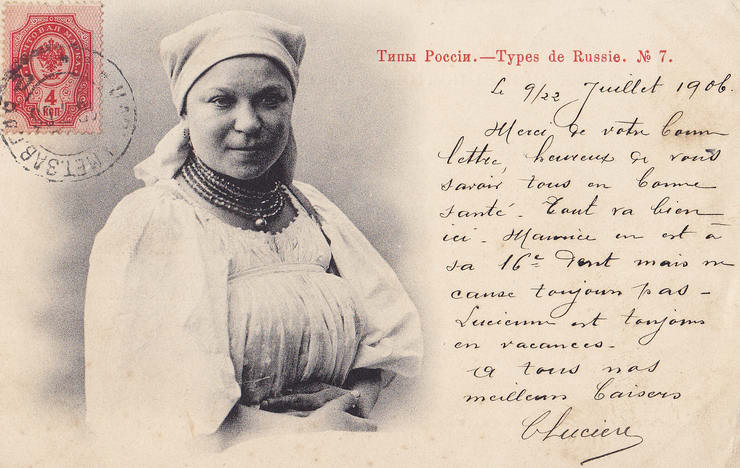 Типы Россіи.—Types de Russie. № 7.
Le 9/22 Juillet 1906.
Merci de votre bonne
lettre, heureux de vous
savoir tous en bonne
santé. Tout va bien
ici. Maurice en est à
sa 16e dent mais ne
cause toujours pas –
Lucienne est toujours
en vacances.
à tous nos
meilleurs baisers
4
КОП